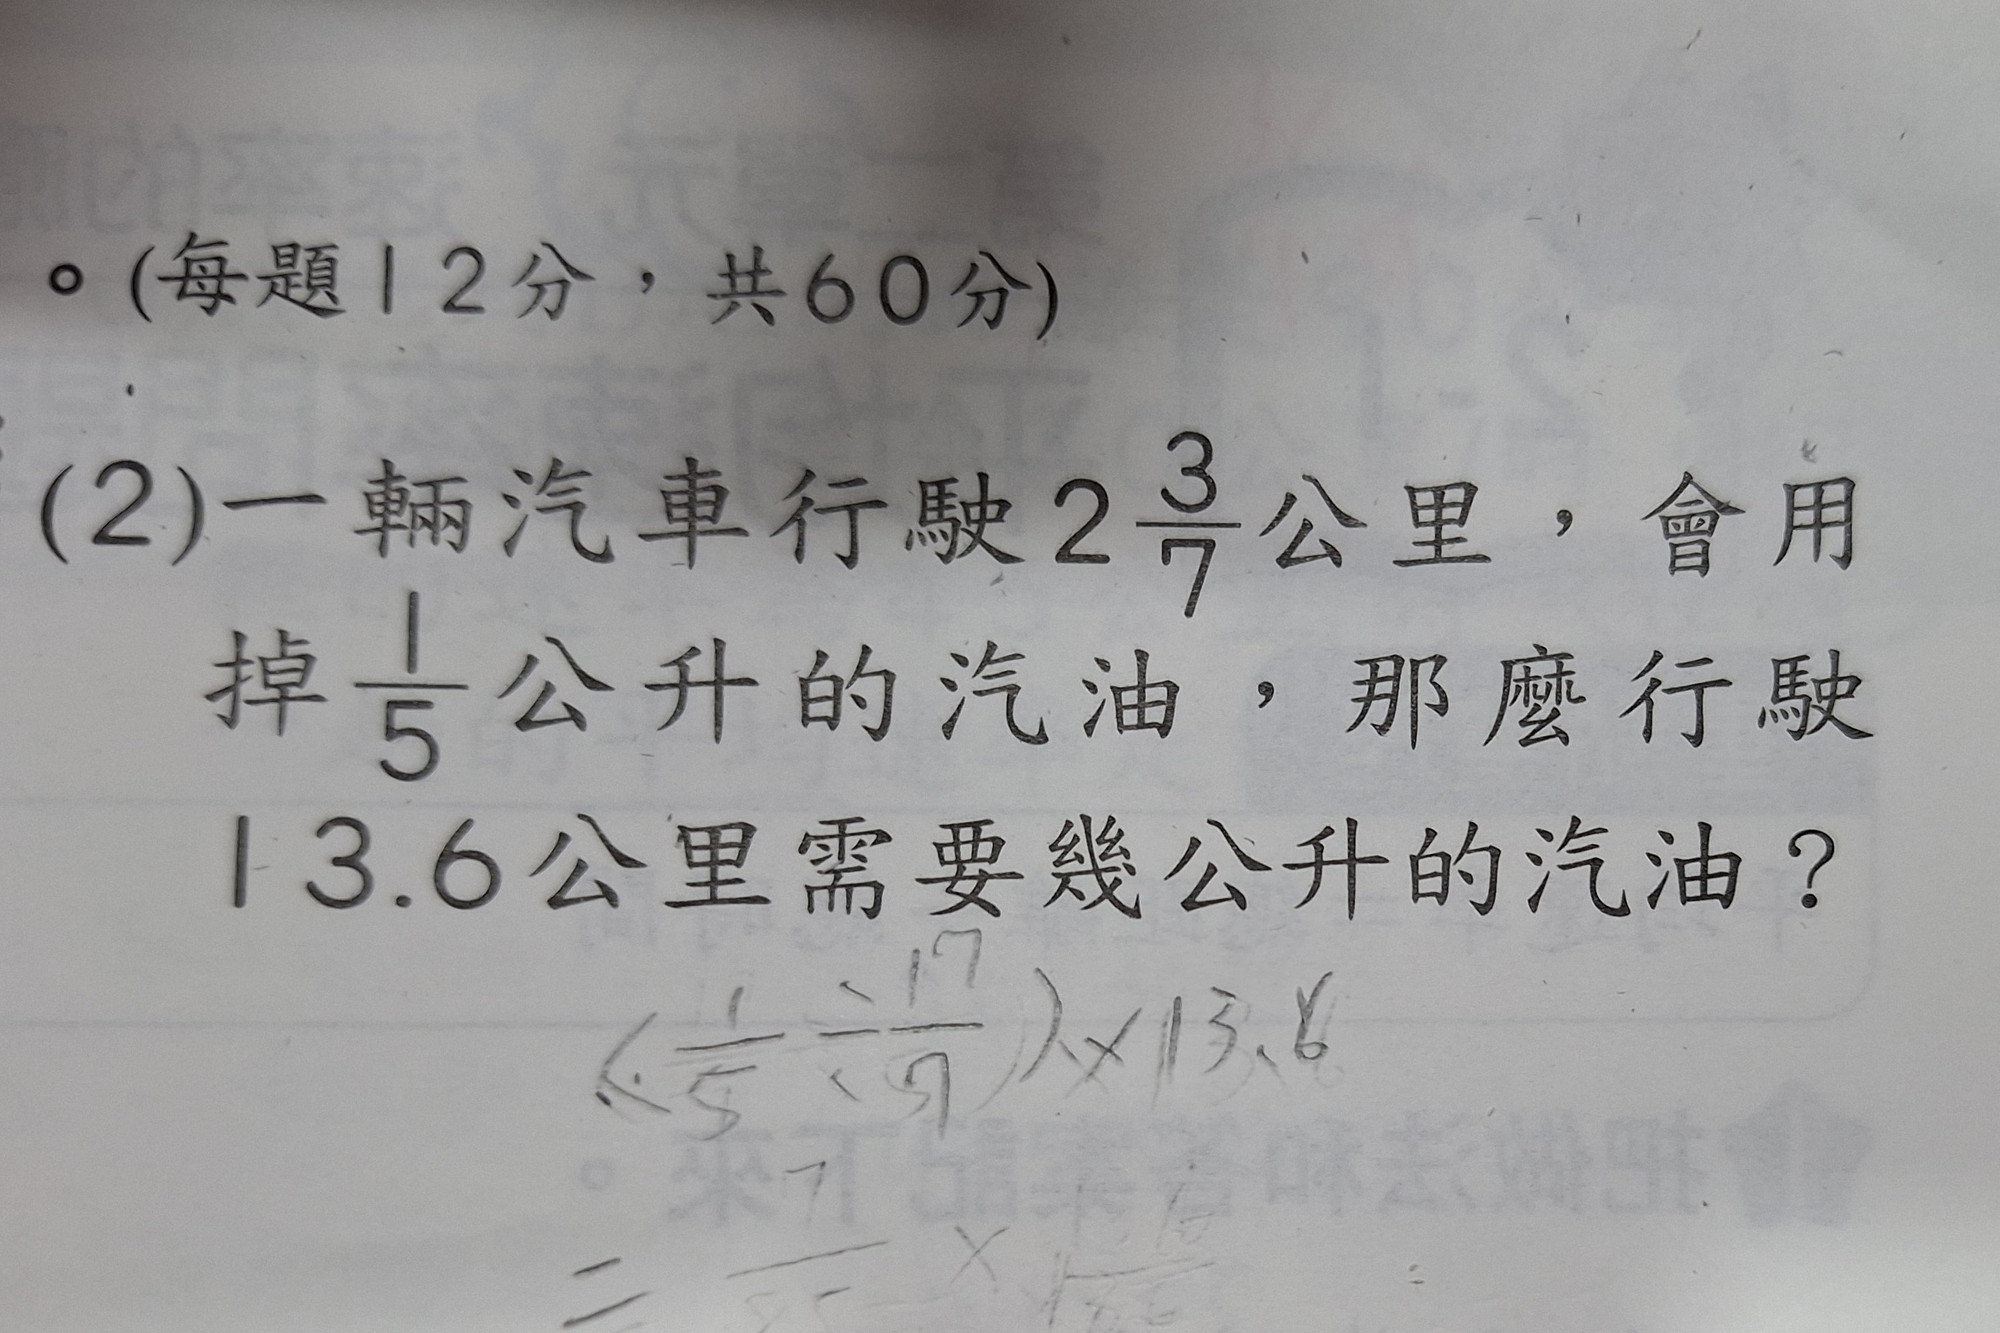 。(每題12分，共60分)
(2)一輛汽車行駛2 3/7公里，會用
掉1/5公升的汽油，那麼行駛
13.6公里需要幾公升的汽油？
(1/5÷17/7)×13.6